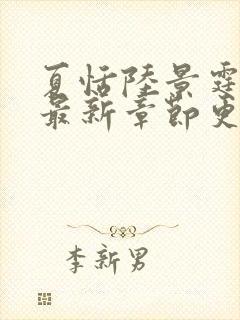 夏恬陸景霆
最新章節更
李新男